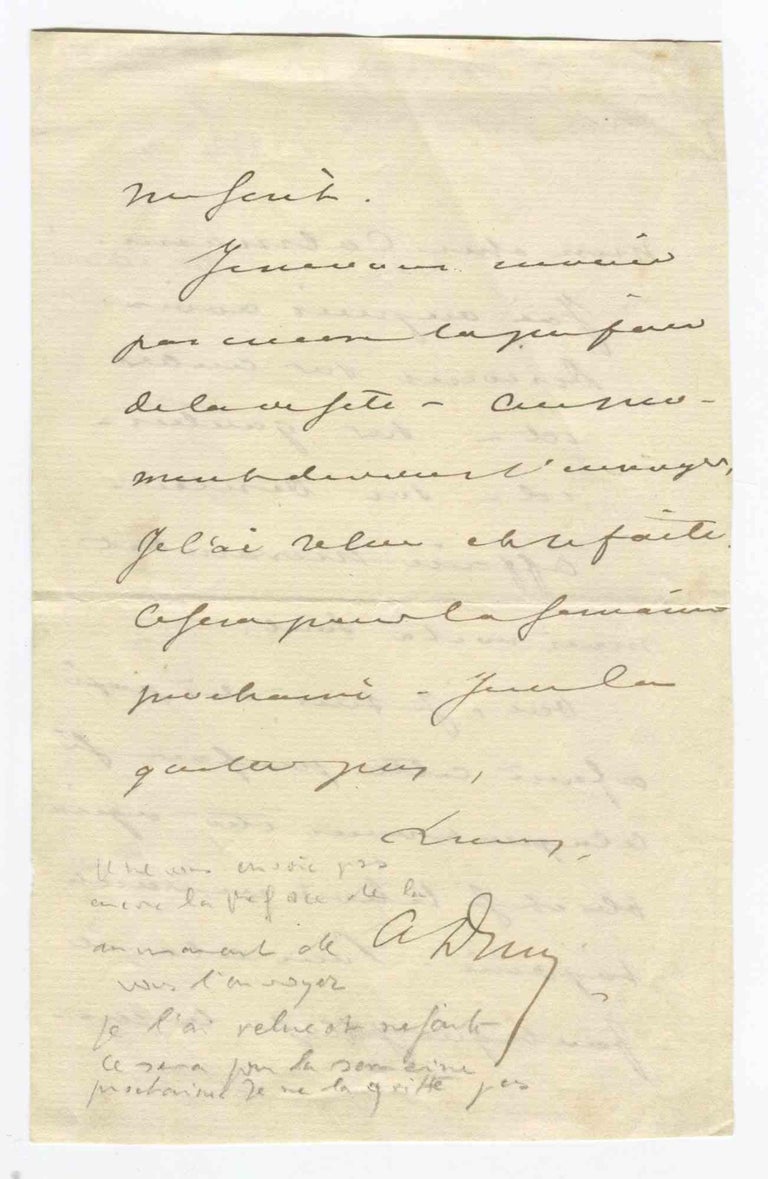 Je ne vous envoie
pas encore la préface
de la visite – au mo-
ment de vous l'envoyer,
Je l'ai relue et refaite.
Ce sera pour la semaine
prochaine – Je ne la
quitte pas,
A D
je ne vous envoie pas
encore la préface de la
au moment de
vous l'envoyer
je l'ai relue et refaite
ce sera pour la semaine
prochaine Je ne la quitte pas